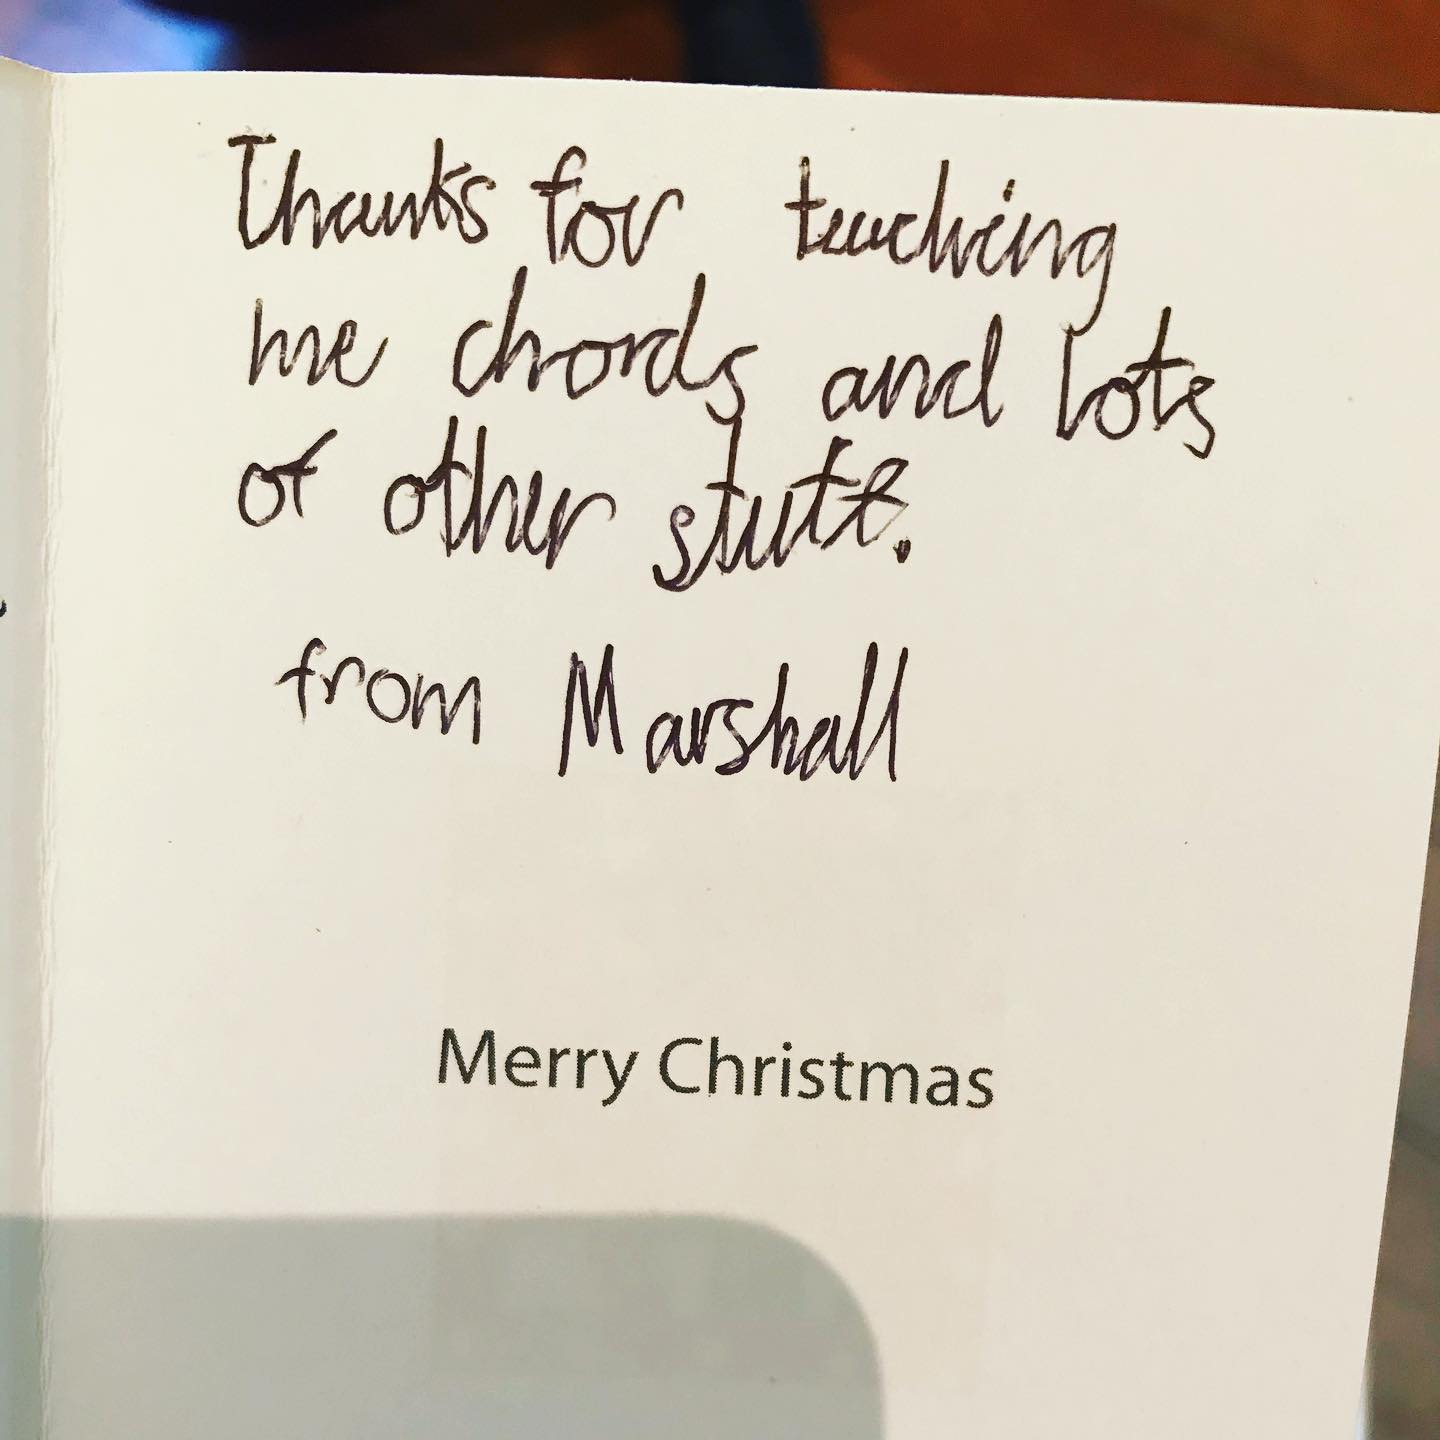 Thanks for teaching
me chords and lots
of other stuff.
from Marshall
Merry Christmas